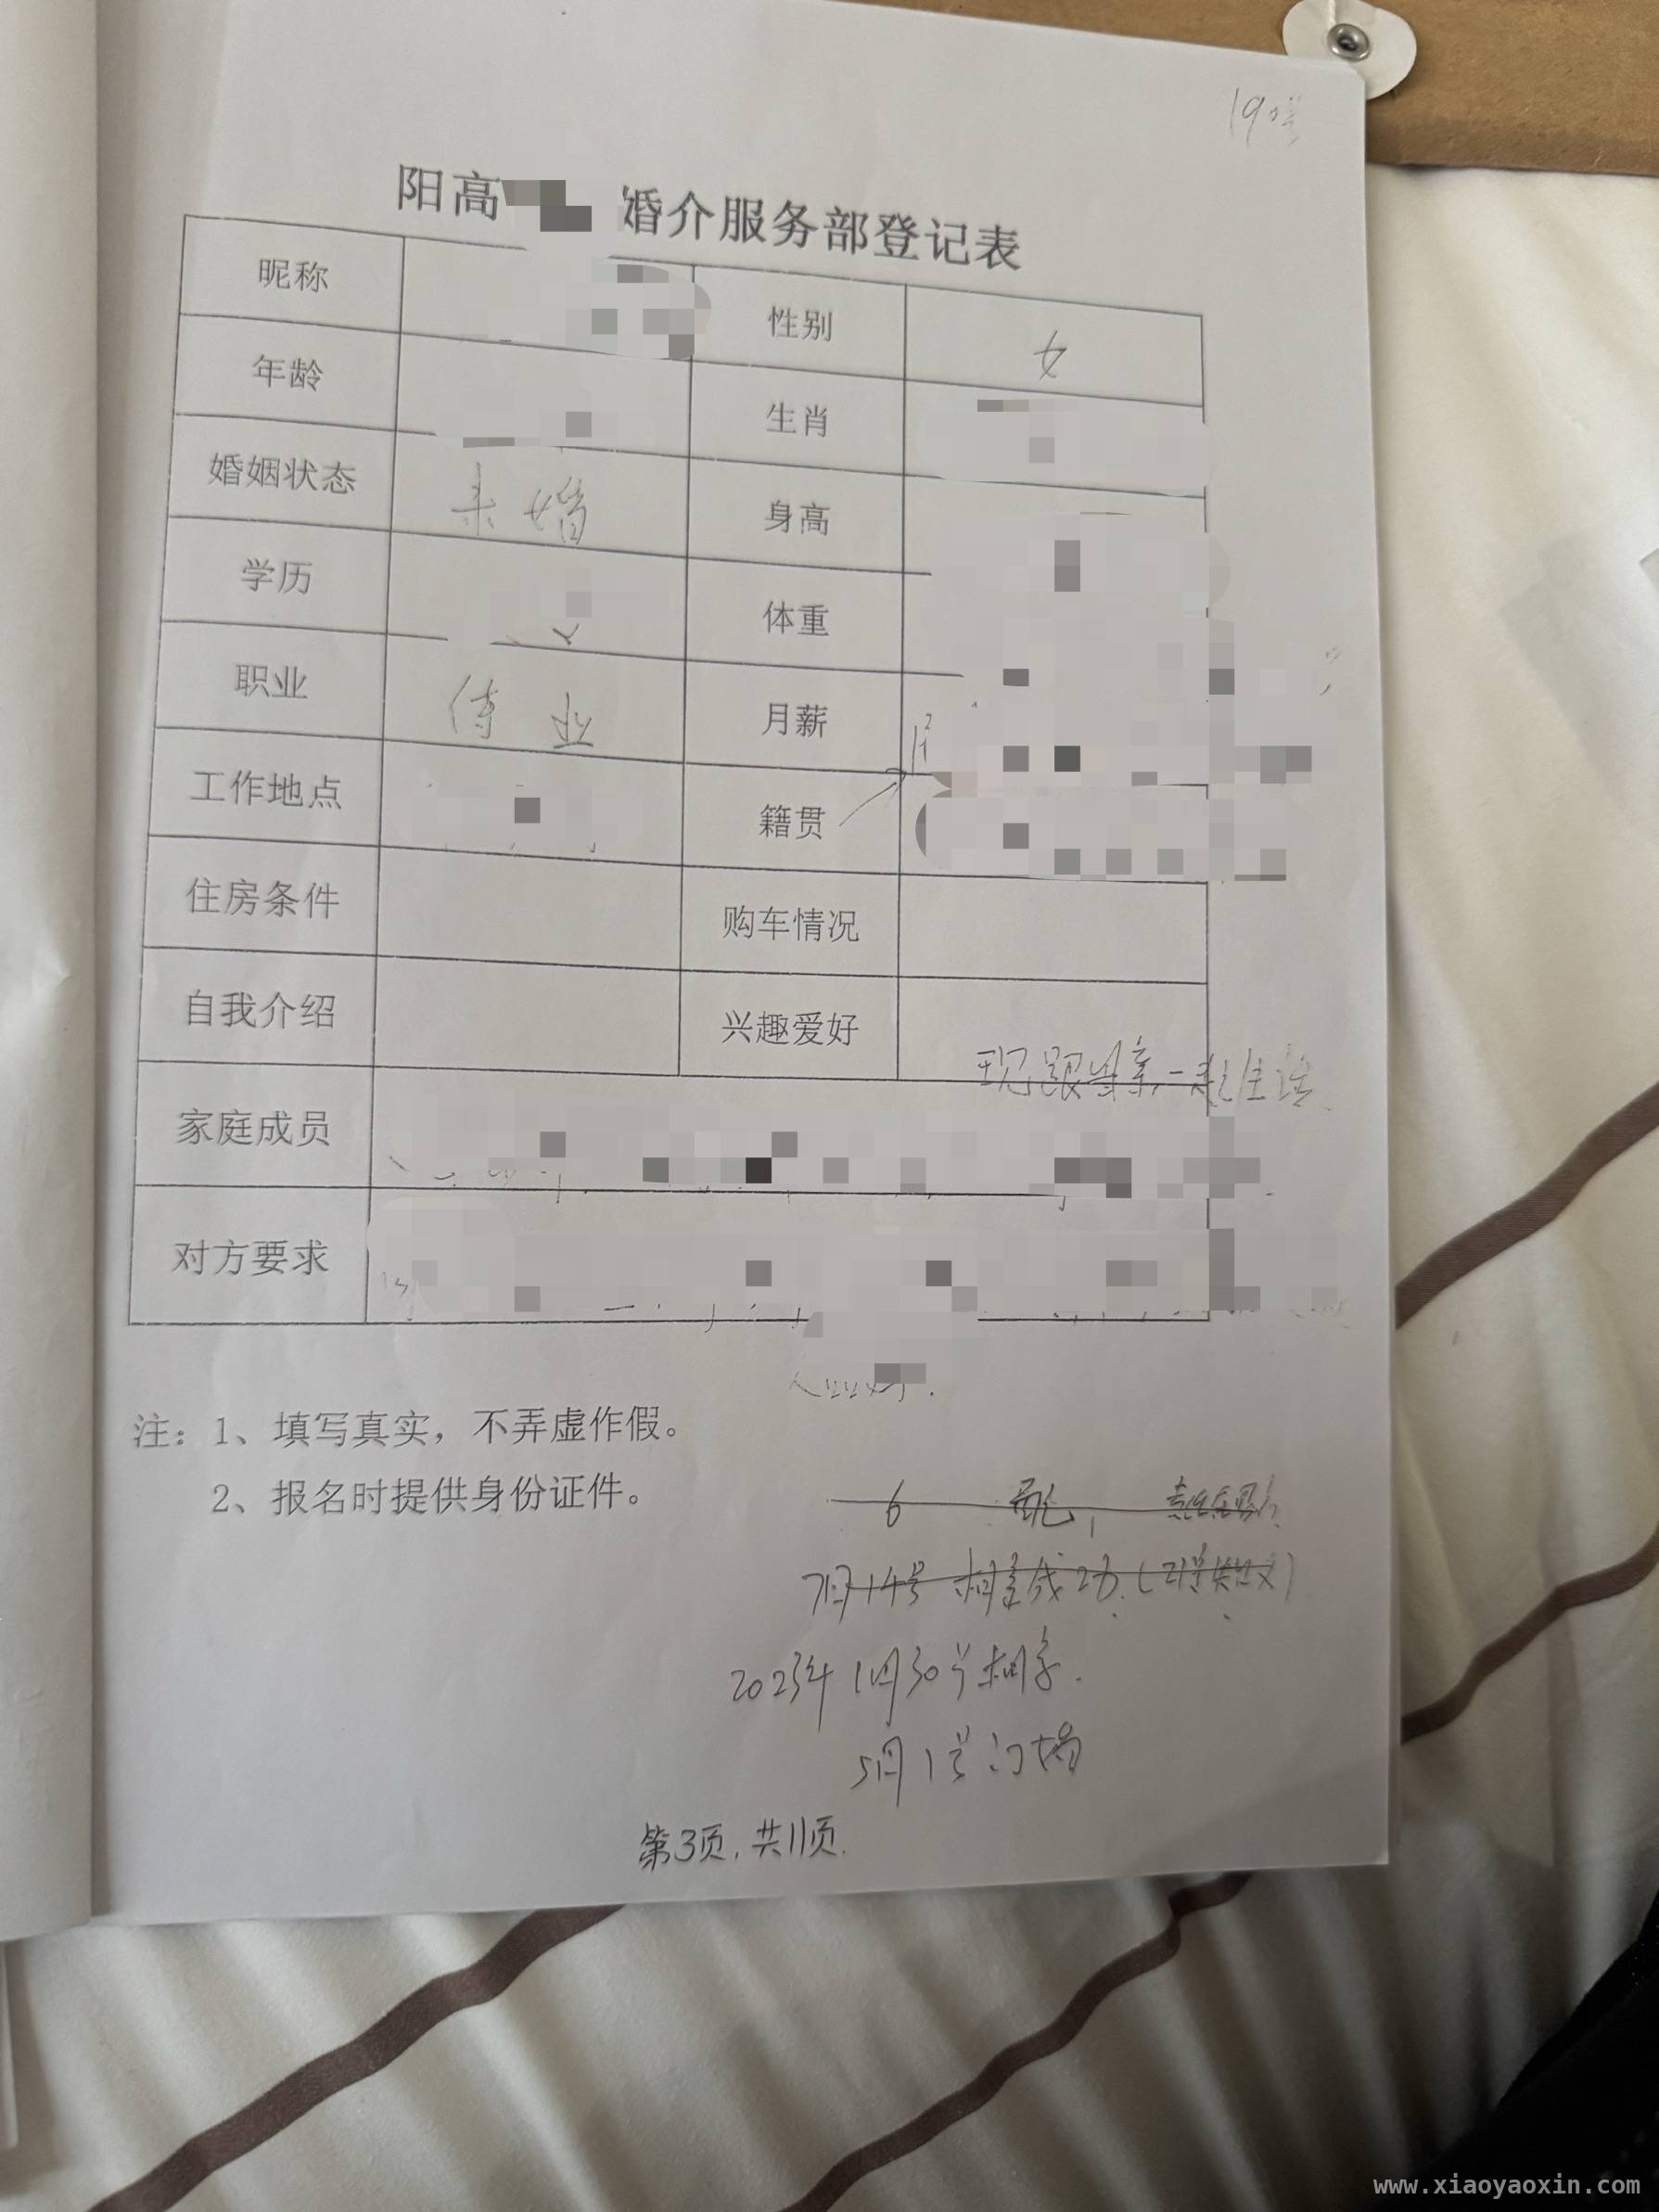 19号
阳高 婚介服务部登记表
昵称 性别 女
年龄 生肖
婚姻状态 未婚 身高
学历 体重
职业 待业 月薪
工作地点 籍贯
住房条件 购车情况
自我介绍 兴趣爱好
现跟母亲一起生活
家庭成员
对方要求
注：1、填写真实，不弄虚作假。
2、报名时提供身份证件。
6
7月14号 相亲成功
2023年1月30号相亲.
5月1号订婚
第3页，共11页.
www.xiaoyaoxin.com